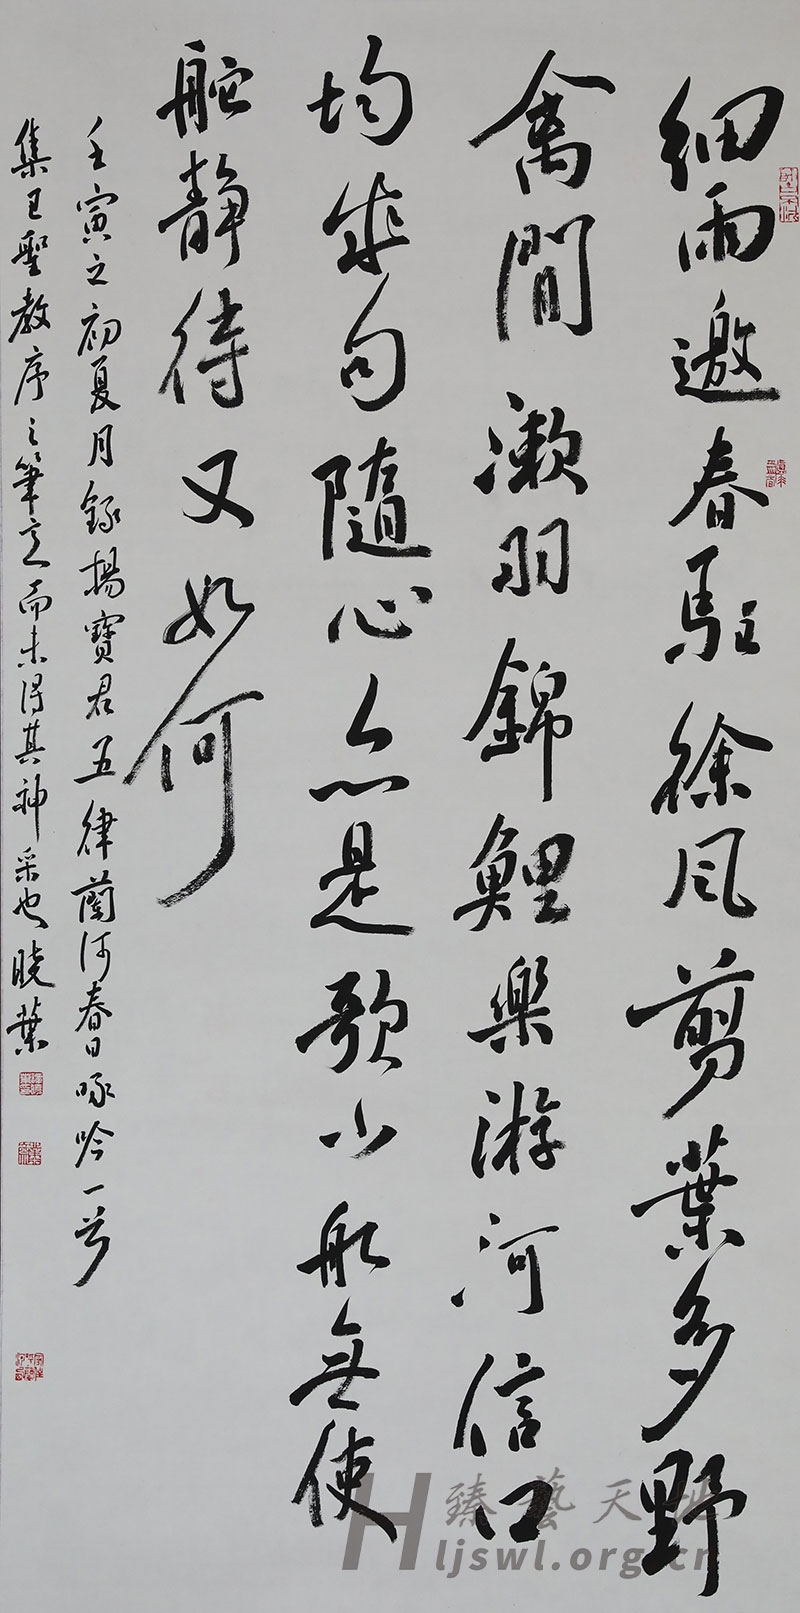 細雨邀春駐徐風剪葉多野
禽閒漱羽錦鯉樂游河信口
均成句隨心亦是歌小船無使
舵靜待又如何
壬寅之初夏月錄楊寶君五律蘭河春日啄吟一首
集王聖教序之筆意而未得其神采也曉葉
臻藝天地
Hljswl.org.cn